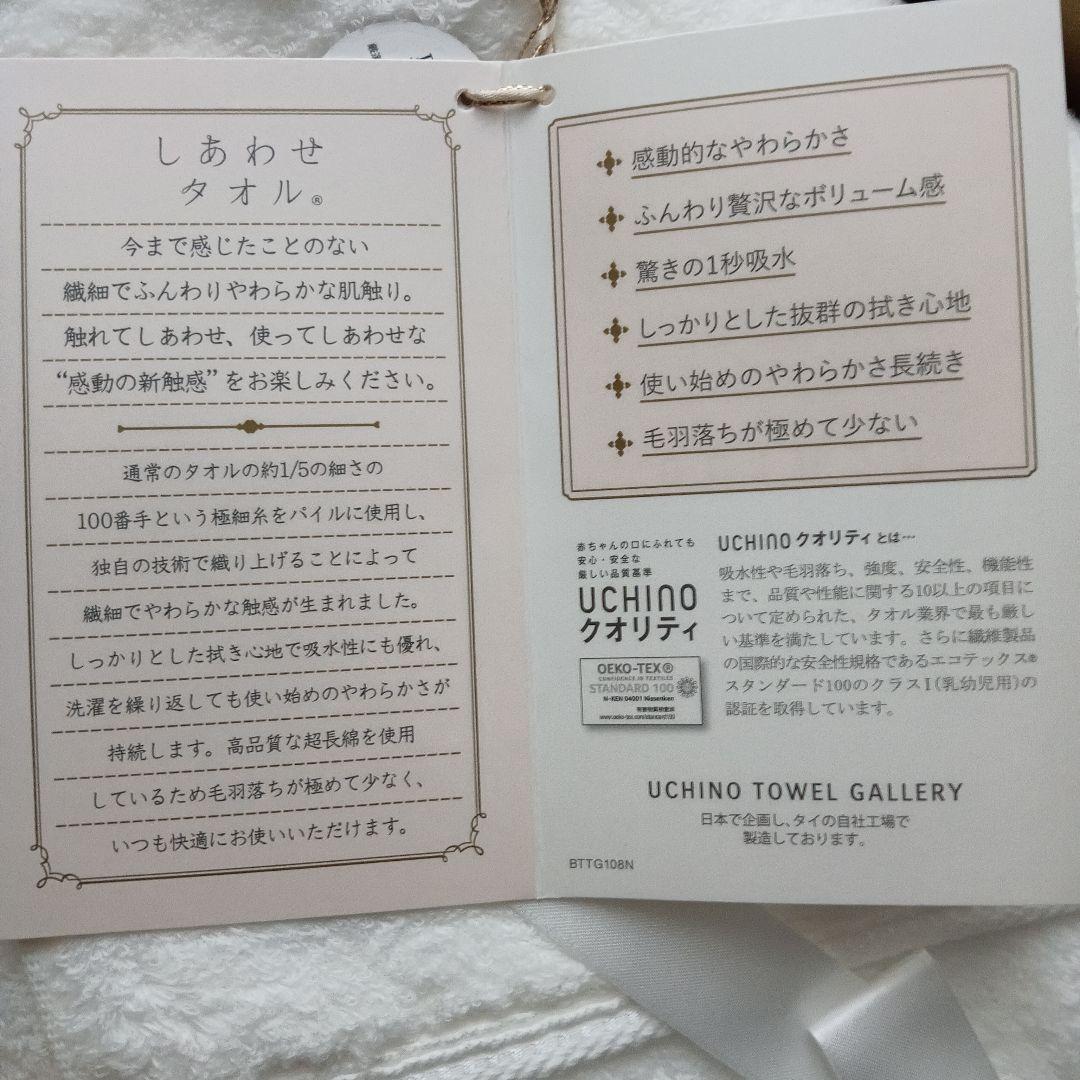 しあわせ
タオル®
今まで感じたことのない
繊細でふんわりやわらかな肌触り。
触れてしあわせ、使ってしあわせな
“感動の新触感”をお楽しみください。
通常のタオルの約1/5の細さの
100番手という極細糸をパイルに使用し、
独自の技術で織り上げることによって
繊細でやわらかな触感が生まれました。
しっかりとした拭き心地で吸水性にも優れ、
洗濯を繰り返しても使い始めのやわらかさが
持続します。高品質な超長綿を使用
しているため毛羽落ちが極めて少なく、
いつも快適にお使いいただけます。
感動的なやわらかさ
ふんわり贅沢なボリューム感
驚きの1秒吸水
しっかりとした抜群の拭き心地
使い始めのやわらかさ長続き
毛羽落ちが極めて少ない
赤ちゃんの口にふれても
安心・安全な
厳しい品質基準
UCHINO
クオリティ
OEKO-TEX®
CONFIDENCE IN TEXTILES
STANDARD 100
N-KEN 04001 Nissenken
www.oeko-tex.com/standard100
UCHINOクオリティとは…
吸水性や毛羽落ち、強度、安全性、機能性
まで、品質や性能に関する10以上の項目に
ついて定められた、タオル業界で最も厳し
い基準を満たしています。さらに繊維製品
の国際的な安全性規格であるエコテックス®
スタンダード100のクラスⅠ(乳幼児用)の
認証を取得しています。
UCHINO TOWEL GALLERY
日本で企画し、タイの自社工場で
製造しております。
BTTG108N